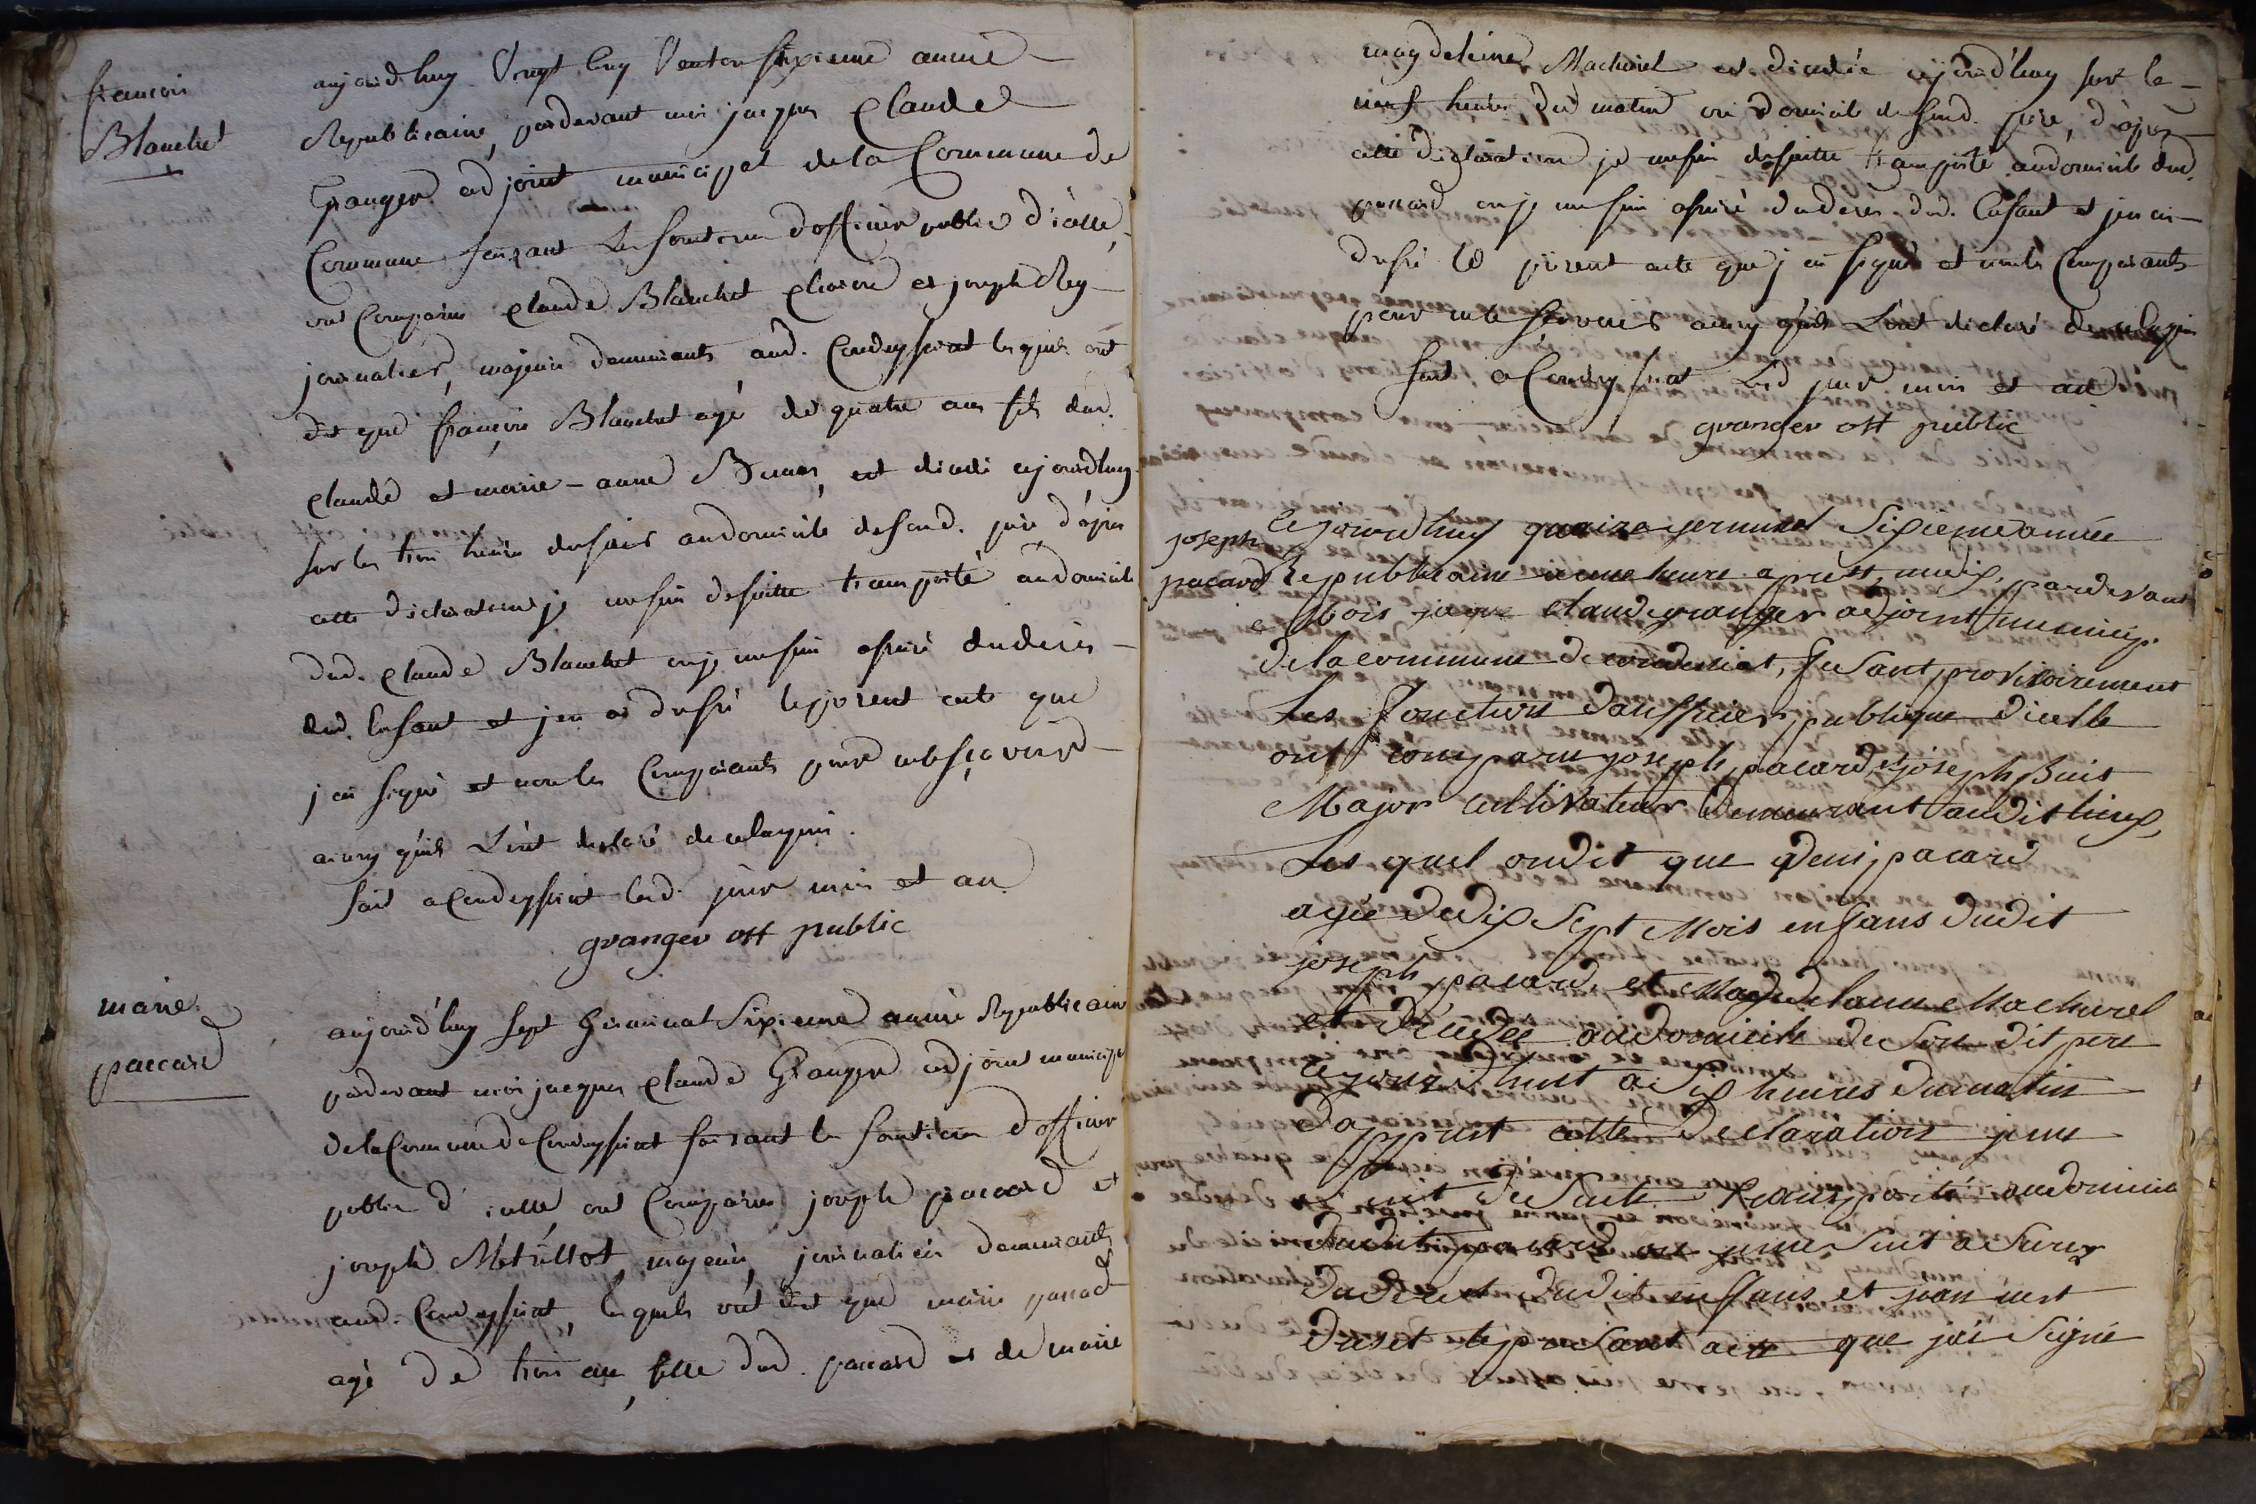 françois
Blanchet
aujourdhuy Vingt cinq Ventose sixieme année
Republicaine, pardevant moi jacques Claude
Granger adjoint municipal de la Commune de
Commune faisant les fonctions dofficier public d'icelle,
ont Comparus Claude Blanchet et joseph Rey
journalier, majeurs demeurants aud. Condeyssiat lesquels ont
dit que françois Blanchet agé de quatre ans fils dud.
Claude et marie-anne est décédé aujourdhuy
sur les trois heures du soir audomicile desond. père, d'après
cette déclaration je me suis desuitte transporté audomicile
dud. Claude Blanchet ou je me suis assuré dudeces
dud. Enfant et jen ai dressé le présent acte que
jai signé et non les Comparants pour ne le sçavoir
ainsy quils L'ont déclaré de ce laquis.
fait a Condeyssiat led. jour mois et an
granger off public
marie
paccard
aujourd'huy sept Germinal Sixieme année Republicaine
pardevant moi jacques Claude Granger adjoint municipal
de la Commune de Condeyssiat faisant les fonctions d'officier
public d'icelle, ont Comparus joseph paccard et
joseph Métrillot, majeurs, journaliers demeurants
aud. Condeyssiat, lesquels ont dit que marie paccard
agé de trois ans, fille dud. paccard et de marie
magdeleine Machurel est décédée aujourd'huy sur le
neuf heures du matin au domicile de sond. père, d'après
cette déclaration je me suis desuitte transporté audomicile dud.
paccard ou je me suis assuré dudeces dud. Enfant et jen ai
dressé le présent acte que j'ai signé et non les Comparants
pour ne le sçavoir ainsy quils L'ont déclaré de ce laquis
fait a Condeyssiat led jour mois et an
granger off public
joseph
pacard
Cejourdhuy quinze germinal Sixieme année
Republicaine a une heure apres midy, pardevant
Mois jaque claude granger adjoint municip.
delacommune de condesiat, fesant provisoirement
Les fonctions daufficier publique dicelle
ont comparu joseph pacard, et joseph Buis
Major cultivateur Demeurant audit lieux,
Les quel ondit que Deni pacard
agée dedix Sept Mois enfans dudit
joseph pacard, et Magdelaine Machurel
et décedée audomicile de Son dit pere
cejourdhuit a Six heures dumatin
Dapprest cette Declaration jeme
suit de Suite transporté audomicile
dudit pacard ou jeme Suit a Surez
dudeces dudit enffans et jean nest
dreset le present acte que jai Signé